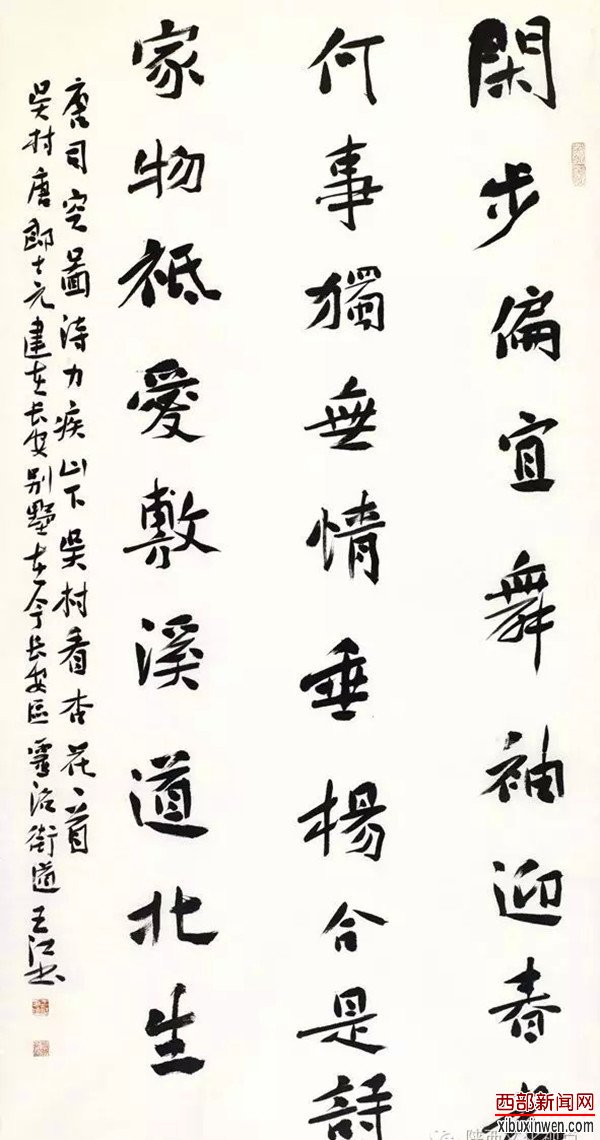 閑步偏宜舞袖迎春光
何事獨無情垂楊合是詩
家物祗愛敷溪道北生
唐司空圖詩力疾山下吳村看杏花一首
吳村唐郎士元建在長安別墅在今長安區靈沼街道 王江書
西部新闻网
xibuxinwen.com